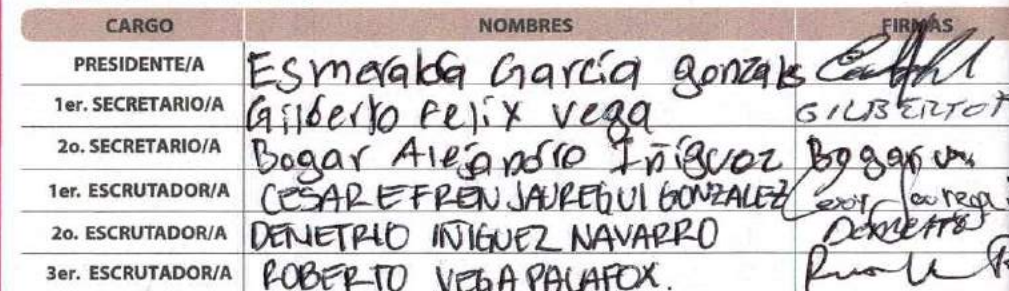 CARGO NOMBRES FIRMAS
PRESIDENTE/A Esmeralda García gonzals
1er. SECRETARIO/A Gilberto Felix Vega GILBERTO F
2o. SECRETARIO/A Bogar Alejandro Iñiguez Bogar
1er. ESCRUTADOR/A CESAR EFREN JAUREGUI GONZALEZ
2o. ESCRUTADOR/A DEMETRIO IÑIGUEZ NAVARRO Demetrio
3er. ESCRUTADOR/A ROBERTO VEGA PALAFOX.